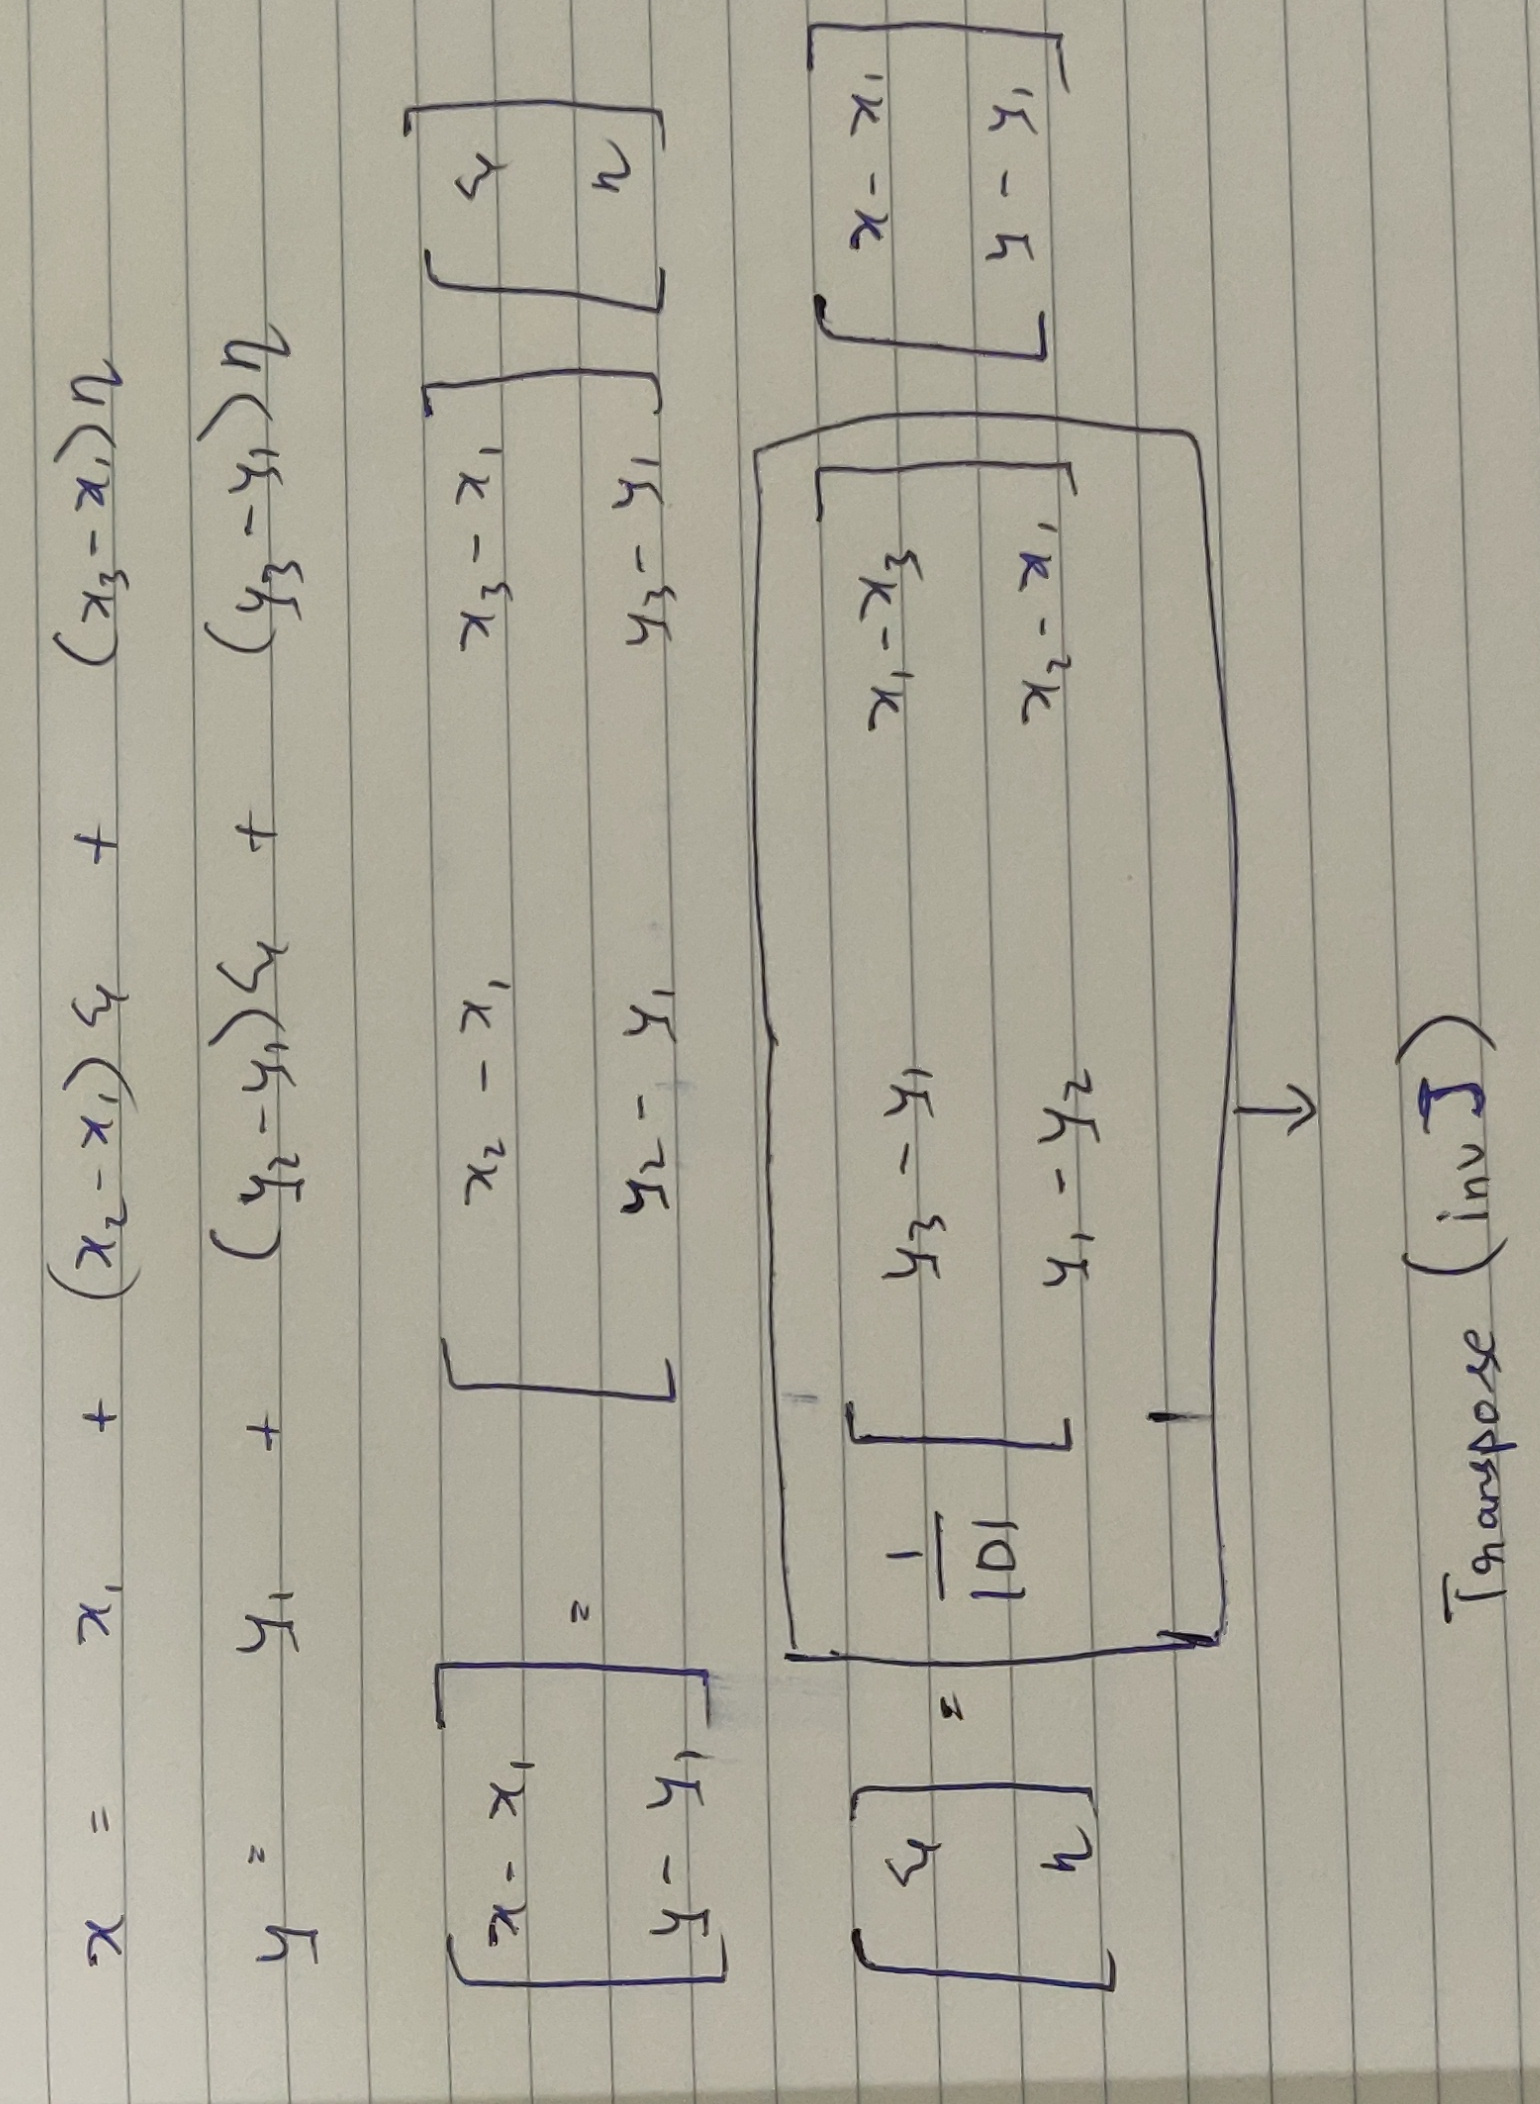 x = x₁ + (x₂ - x₁) ξ + (x₃ - x₁) η
y = y₁ + (y₂ - y₁) ξ + (y₃ - y₁) η
[x - x₁; y - y₁] = [x₂ - x₁, x₃ - x₁; y₂ - y₁, y₃ - y₁] [ξ; η]
[ξ; η] = 1/|D| [y₃ - y₁, x₁ - x₃; y₁ - y₂, x₂ - x₁] [x - x₁; y - y₁]
↓
Transpose (inv J)